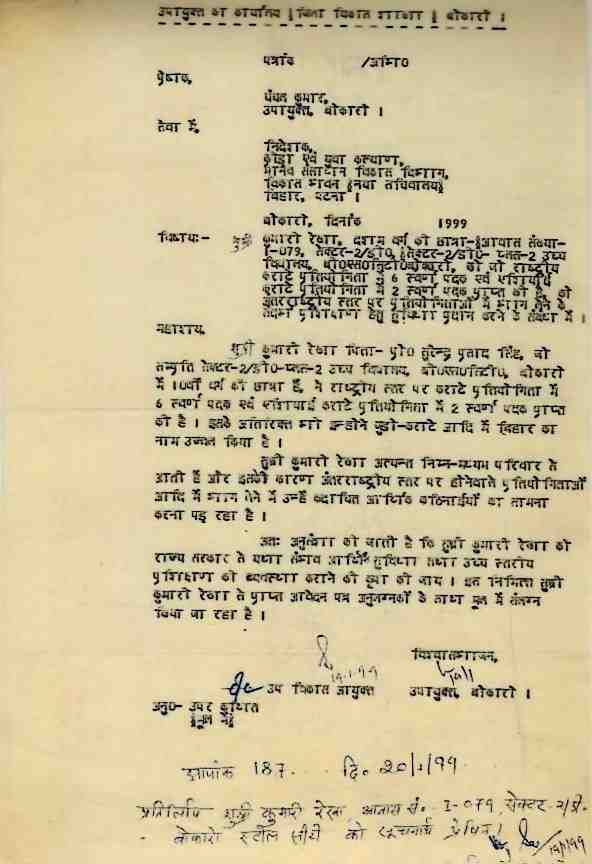 उपायुक्त का कार्यालय (जिला विकास शाखा) बोकारो ।
पत्रांक /अभि०
प्रेषक,
चंचल कुमार,
उपायुक्त, बोकारो ।
सेवा में,
निदेशक,
क्रीड़ा एवं युवा कल्याण,
मानव संसाधन विकास विभाग,
विकास भवन (नया सचिवालय)
बिहार, पटना ।
बोकारो, दिनांक 1999
विषय:- सुश्री कुमारी रेखा, दशम वर्ग की छात्रा-(आवास संख्या-
I-079, सेक्टर-2/डी०, (सेक्टर-2/डी०- प्लस-2 उच्च
विद्यालय, बी०एस०सिटी०बोकारो, को जो राष्ट्रीय
कराटे प्रतियोगिता में 6 स्वर्ण पदक एवं एशियाई
कराटे प्रतियोगिता में 2 स्वर्ण पदक प्राप्त की है, को
अंतरराष्ट्रीय स्तर पर प्रतियोगिताओं में भाग लेने के
प्रशिक्षण हेतु सुविधा प्रदान करने के संबंध में ।
महाशय,
सुश्री कुमारी रेखा पिता- प्रो० सुरेन्द्र प्रसाद सिंह, जो
सम्प्रति सेक्टर-2/डी०-प्लस-2 उच्च विद्यालय, बी०एस०सिटी०, बोकारो
में 10वीं वर्ग की छात्रा हैं, ने राष्ट्रीय स्तर पर कराटे प्रतियोगिता में
6 स्वर्ण पदक एवं एशियाई कराटे प्रतियोगिता में 2 स्वर्ण पदक प्राप्त
की है । इसके अतिरिक्त भी इन्होंने जुडो-कराटे आदि में बिहार का
नाम उज्जवल किया है ।
सुश्री कुमारी रेखा अत्यन्त निम्न-मध्यम परिवार से
आती हैं और इसकी कारण अंतरराष्ट्रीय स्तर पर होनेवाले प्रतियोगिताओं
आदि में भाग लेने में उन्हें कदाचित आर्थिक कठिनाईयों का सामना
करना पड़ रहा है ।
अत: अनुशंसा की जाती है कि सुश्री कुमारी रेखा को
राज्य सरकार से यथा संभव आर्थिक सुविधा तथा उच्च स्तरीय
प्रशिक्षण की व्यवस्था कराने की कृपा की जाय । इस निमित्त सुश्री
कुमारी रेखा से प्राप्त आवेदन पत्र अनुलग्नकों के साथ मूल में संलग्न
किया जा रहा है ।
विश्वासभाजन,
19.1.99
उप विकास आयुक्त उपायुक्त, बोकारो ।
अनु०- उपर कथित
(मूल में)
ज्ञापांक 187. दि० 20/1/99
प्रतिलिपि सुश्री कुमारी रेखा, आवास सं. I-079, सेक्टर-2/डी.
- बोकारो स्टील सीटी को सूचनार्थ प्रेषित ।
19/1/99